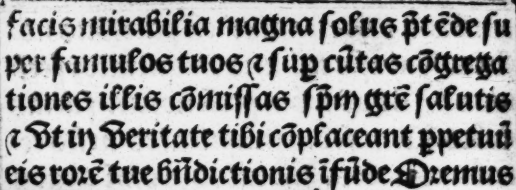 facis mirabilia magna solus p̄t ēde su
per famulos tuos ⁊ sup̲ cūtas cōgrega
tiones illis cōmissas sp̄m grē salutis
⁊ vt in veritate tibi cōplaceant p̲petuū
eis rorē tue bn̄dictionis īfūde Oremus